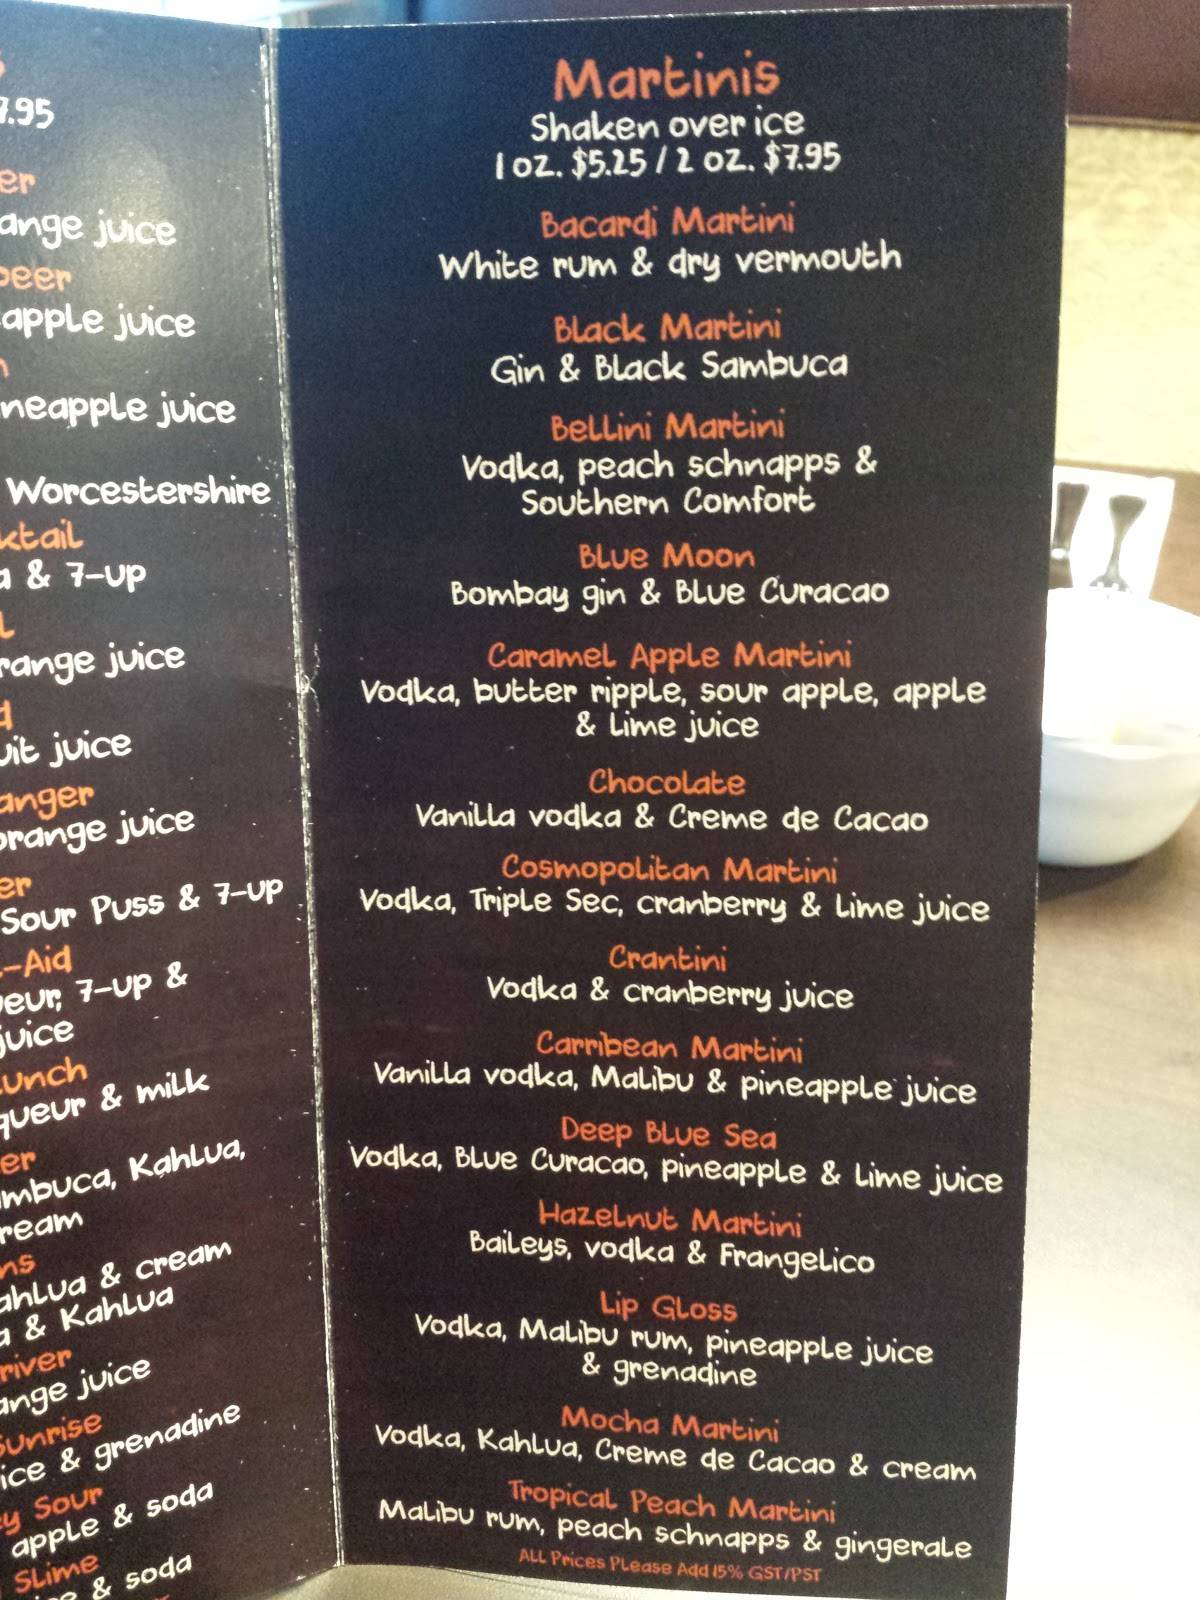 7.95
juice
juice
juice
Worcestershire
& 7-up
juice
juice
juice
Sour Puss & 7-up
-Aid
7-up &
juice
& milk
Kahlua,
& cream
& Kahlua
juice
& grenadine
Sour
apple & soda
Slime
& soda
Martinis
Shaken over ice
1 oz. $5.25 / 2 oz. $7.95
Bacardi Martini
White rum & dry vermouth
Black Martini
Gin & Black Sambuca
Bellini Martini
Vodka, peach schnapps &
Southern Comfort
Blue Moon
Bombay gin & Blue Curacao
Caramel Apple Martini
Vodka, butter ripple, sour apple, apple
& lime juice
Chocolate
Vanilla vodka & Creme de Cacao
Cosmopolitan Martini
Vodka, Triple Sec, cranberry & lime juice
Crantini
Vodka & cranberry juice
Carribean Martini
Vanilla vodka, Malibu & pineapple juice
Deep Blue Sea
Vodka, Blue Curacao, pineapple & lime juice
Hazelnut Martini
Baileys, vodka & Frangelico
Lip Gloss
Vodka, Malibu rum, pineapple juice
& grenadine
Mocha Martini
Vodka, Kahlua, Creme de Cacao & cream
Tropical Peach Martini
Malibu rum, peach schnapps & gingerale
ALL Prices Please Add 15% GST/PST